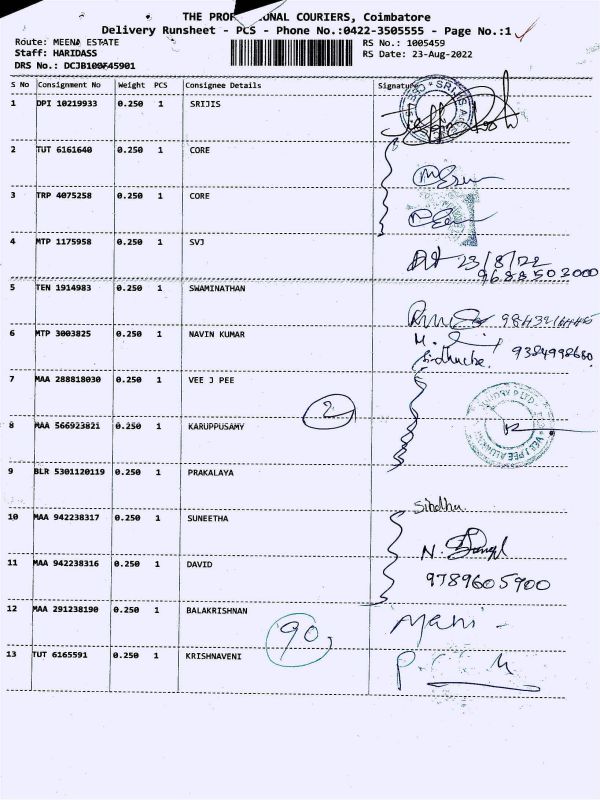 THE PROF   ONAL COURIERS, Coimbatore
Delivery Runsheet - PCS - Phone No.:0422-3505555 - Page No.:1
Route: MEENA ESTATE
RS No.: 1005459
Staff: HARIDASS
RS Date: 23-Aug-2022
DRS No.: DCJB100F45901
S No Consignment No Weight PCS Consignee Details Signature
1 DPI 10219933 0.250 1 SRIJIS
2 TUT 6161640 0.250 1 CORE
3 TRP 4075258 0.250 1 CORE
4 MTP 1175958 0.250 1 SVJ
23/8/22
9688502000
5 TEN 1914983 0.250 1 SWAMINATHAN
6 MTP 3003825 0.250 1 NAVIN KUMAR
9384998660
7 MAA 288818030 0.250 1 VEE J PEE
2
8 MAA 566923821 0.250 1 KARUPPUSAMY
9 BLR 5301120119 0.250 1 PRAKALAYA
Sindhu
10 MAA 942238317 0.250 1 SUNEETHA
11 MAA 942238316 0.250 1 DAVID
9789605900
12 MAA 291238190 0.250 1 BALAKRISHNAN
Mani -
90
13 TUT 6165591 0.250 1 KRISHNAVENI